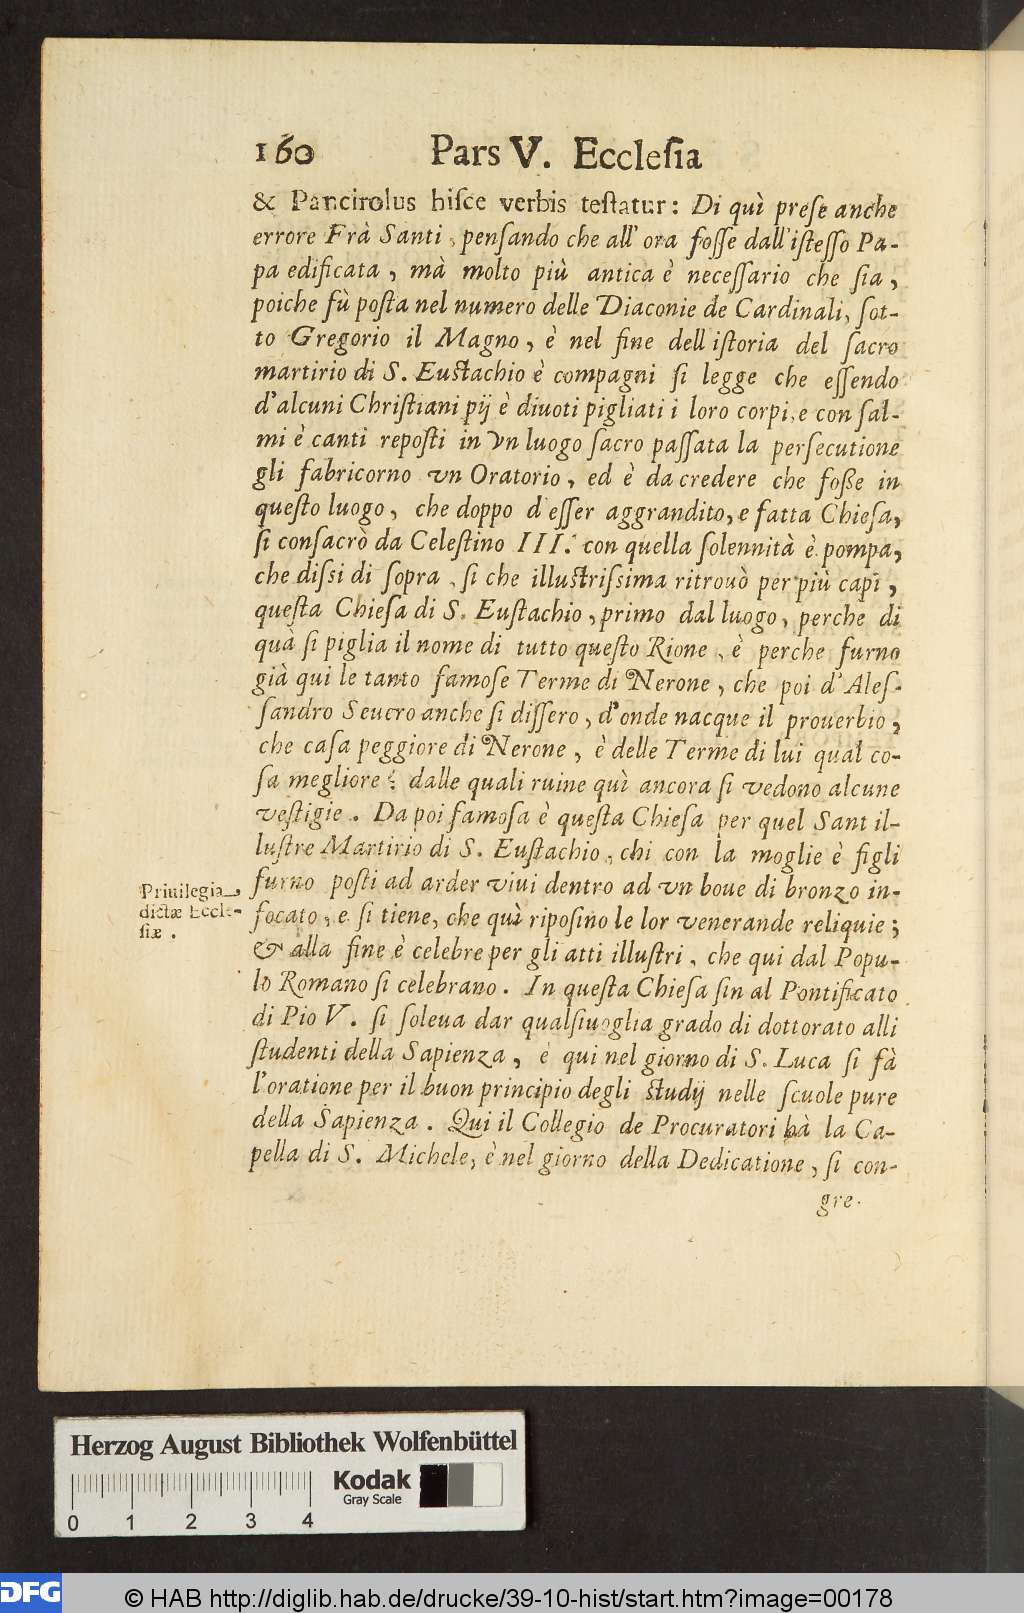 160 Pars V. Eccleſia
& Pancirolus hiſce verbis teſtatur: Di quì preſe anche
errore Frà Santi, penſando che all' ora foſſe dall'iſteſſo Pa-
pa edificata, mà molto più antica è neceſſario che ſia,
poiche fù poſta nel numero delle Diaconie de Cardinali, ſot-
to Gregorio il Magno, è nel fine dell iſtoria del ſacro
martirio di S. Euſtachio è compagni ſi legge che eſſendo
d'alcuni Chriſtiani pij è diuoti pigliati i loro corpi, e con ſal-
mi è canti repoſti in vn luogo ſacro paſſata la perſecutione
gli fabricorno vn Oratorio, ed è da credere che foße in
queſto luogo, che doppo d'eſſer aggrandito, e fatta Chieſa,
ſi conſacrò da Celeſtino III. con quella ſolennità è pompa,
che diſsi di ſopra, ſi che illuſtriſsima ritrouò per più capi,
queſta Chieſa di S. Euſtachio, primo dal luogo, perche di
quà ſi piglia il nome di tutto queſto Rione, è perche furno
già qui le tanto famoſe Terme di Nerone, che poi d'Aleſ-
ſandro Seuero anche ſi diſſero, d'onde nacque il prouerbio,
che caſa peggiore di Nerone, è delle Terme di lui qual co-
ſa megliore? dalle quali ruine quì ancora ſi vedono alcune
veſtigie. Da poi famoſa è queſta Chieſa per quel Sant il-
luſtre Martirio di S. Euſtachio, chi con la moglie è figli
furno poſti ad arder viui dentro ad vn boue di bronzo in-
focato, e ſi tiene, che quì ripoſino le lor venerande reliquie;
& alla fine è celebre per gli atti illuſtri, che qui dal Popu-
lo Romano ſi celebrano. In queſta Chieſa ſin al Pontificato
di Pio V. ſi ſoleua dar qualſiuoglia grado di dottorato alli
ſtudenti della Sapienza, è qui nel giorno di S. Luca ſi fà
l'oratione per il buon principio degli ſtudij nelle ſcuole pure
della Sapienza. Qui il Collegio de Procuratori hà la Ca-
pella di S. Michele, è nel giorno della Dedicatione, ſi con-
gre-
Priuilegia
dictæ Eccle-
ſiæ.
Herzog August Bibliothek Wolfenbüttel
Kodak
Gray Scale
0 1 2 3 4
DFG © HAB http://diglib.hab.de/drucke/39-10-hist/start.htm?image=00178